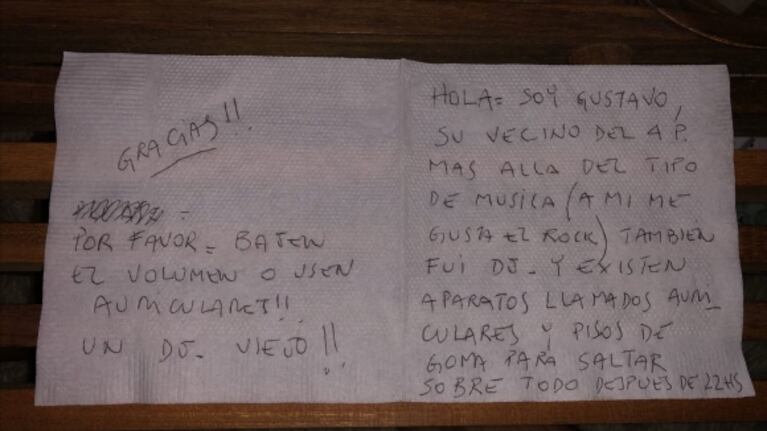 HOLA= SOY GUSTAVO,
SU VECINO DEL 4 P.
MAS ALLA DEL TIPO
DE MUSICA (A MI ME
GUSTA EL ROCK) TAMBIEN
FUI DJ- Y EXISTEN
APARATOS LLAMADOS AURI_
CULARES Y PISOS DE
GOMA PARA SALTAR
SOBRE TODO DESPUES DE 22HS
GRACIAS!!
POR FAVOR= BAJEN
EL VOLUMEN O USEN
AURICULARES!!
UN DJ- VIEJO!!